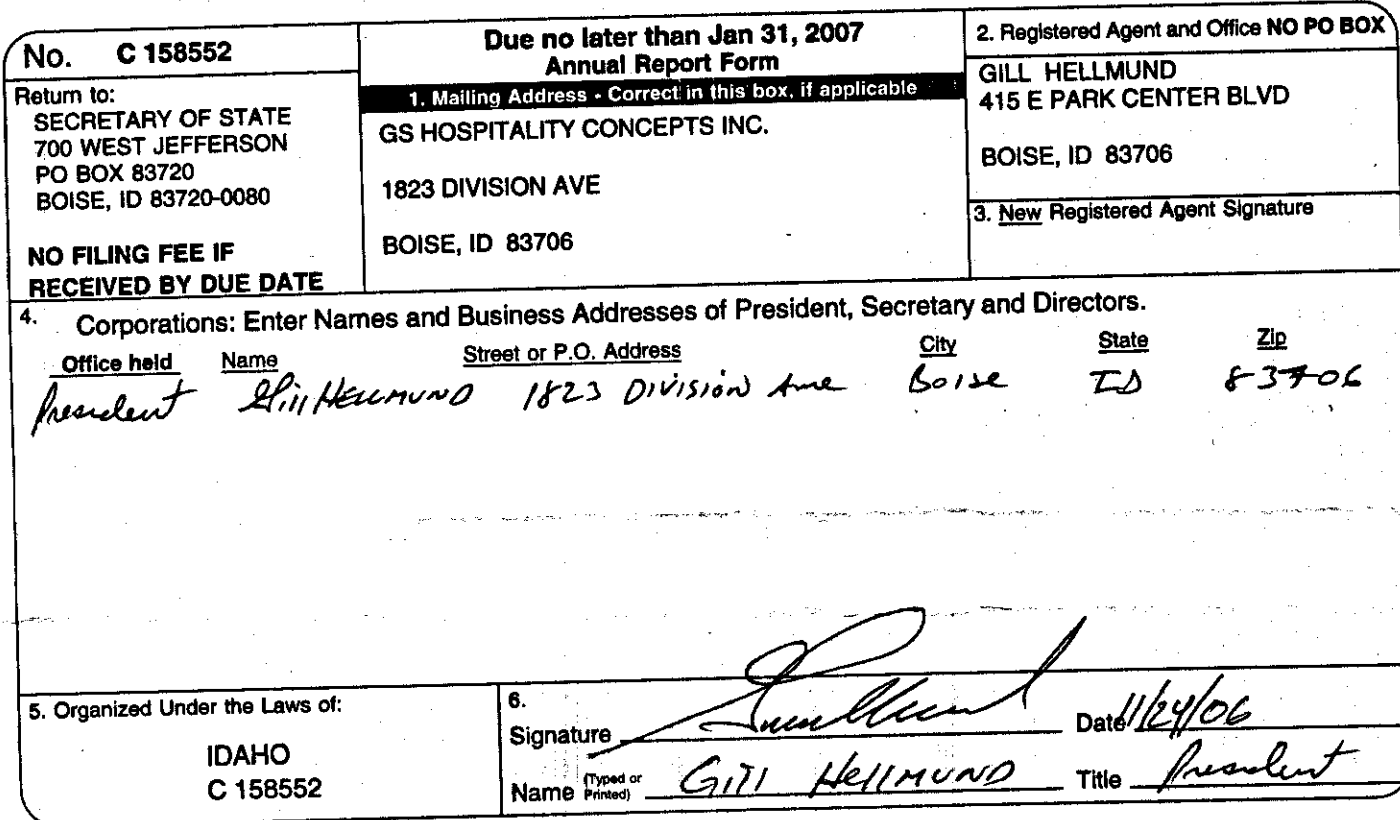 No. C 158552
Return to:
SECRETARY OF STATE
700 WEST JEFFERSON
PO BOX 83720
BOISE, ID 83720-0080
NO FILING FEE IF
RECEIVED BY DUE DATE
Due no later than Jan 31, 2007
Annual Report Form
1. Mailing Address - Correct in this box, if applicable
GS HOSPITALITY CONCEPTS INC.
1823 DIVISION AVE
BOISE, ID 83706
2. Registered Agent and Office NO PO BOX
GILL HELLMUND
415 E PARK CENTER BLVD
BOISE, ID 83706
3. New Registered Agent Signature
4. Corporations: Enter Names and Business Addresses of President, Secretary and Directors.
Office held Name Street or P.O. Address City State Zip
President Gill HELLMUND 1823 DIVISION Ave Boise ID 83706
5. Organized Under the Laws of:
IDAHO
C 158552
6.
Signature Date 11/24/06
Name (Typed or Printed) Gill HellMUND Title President